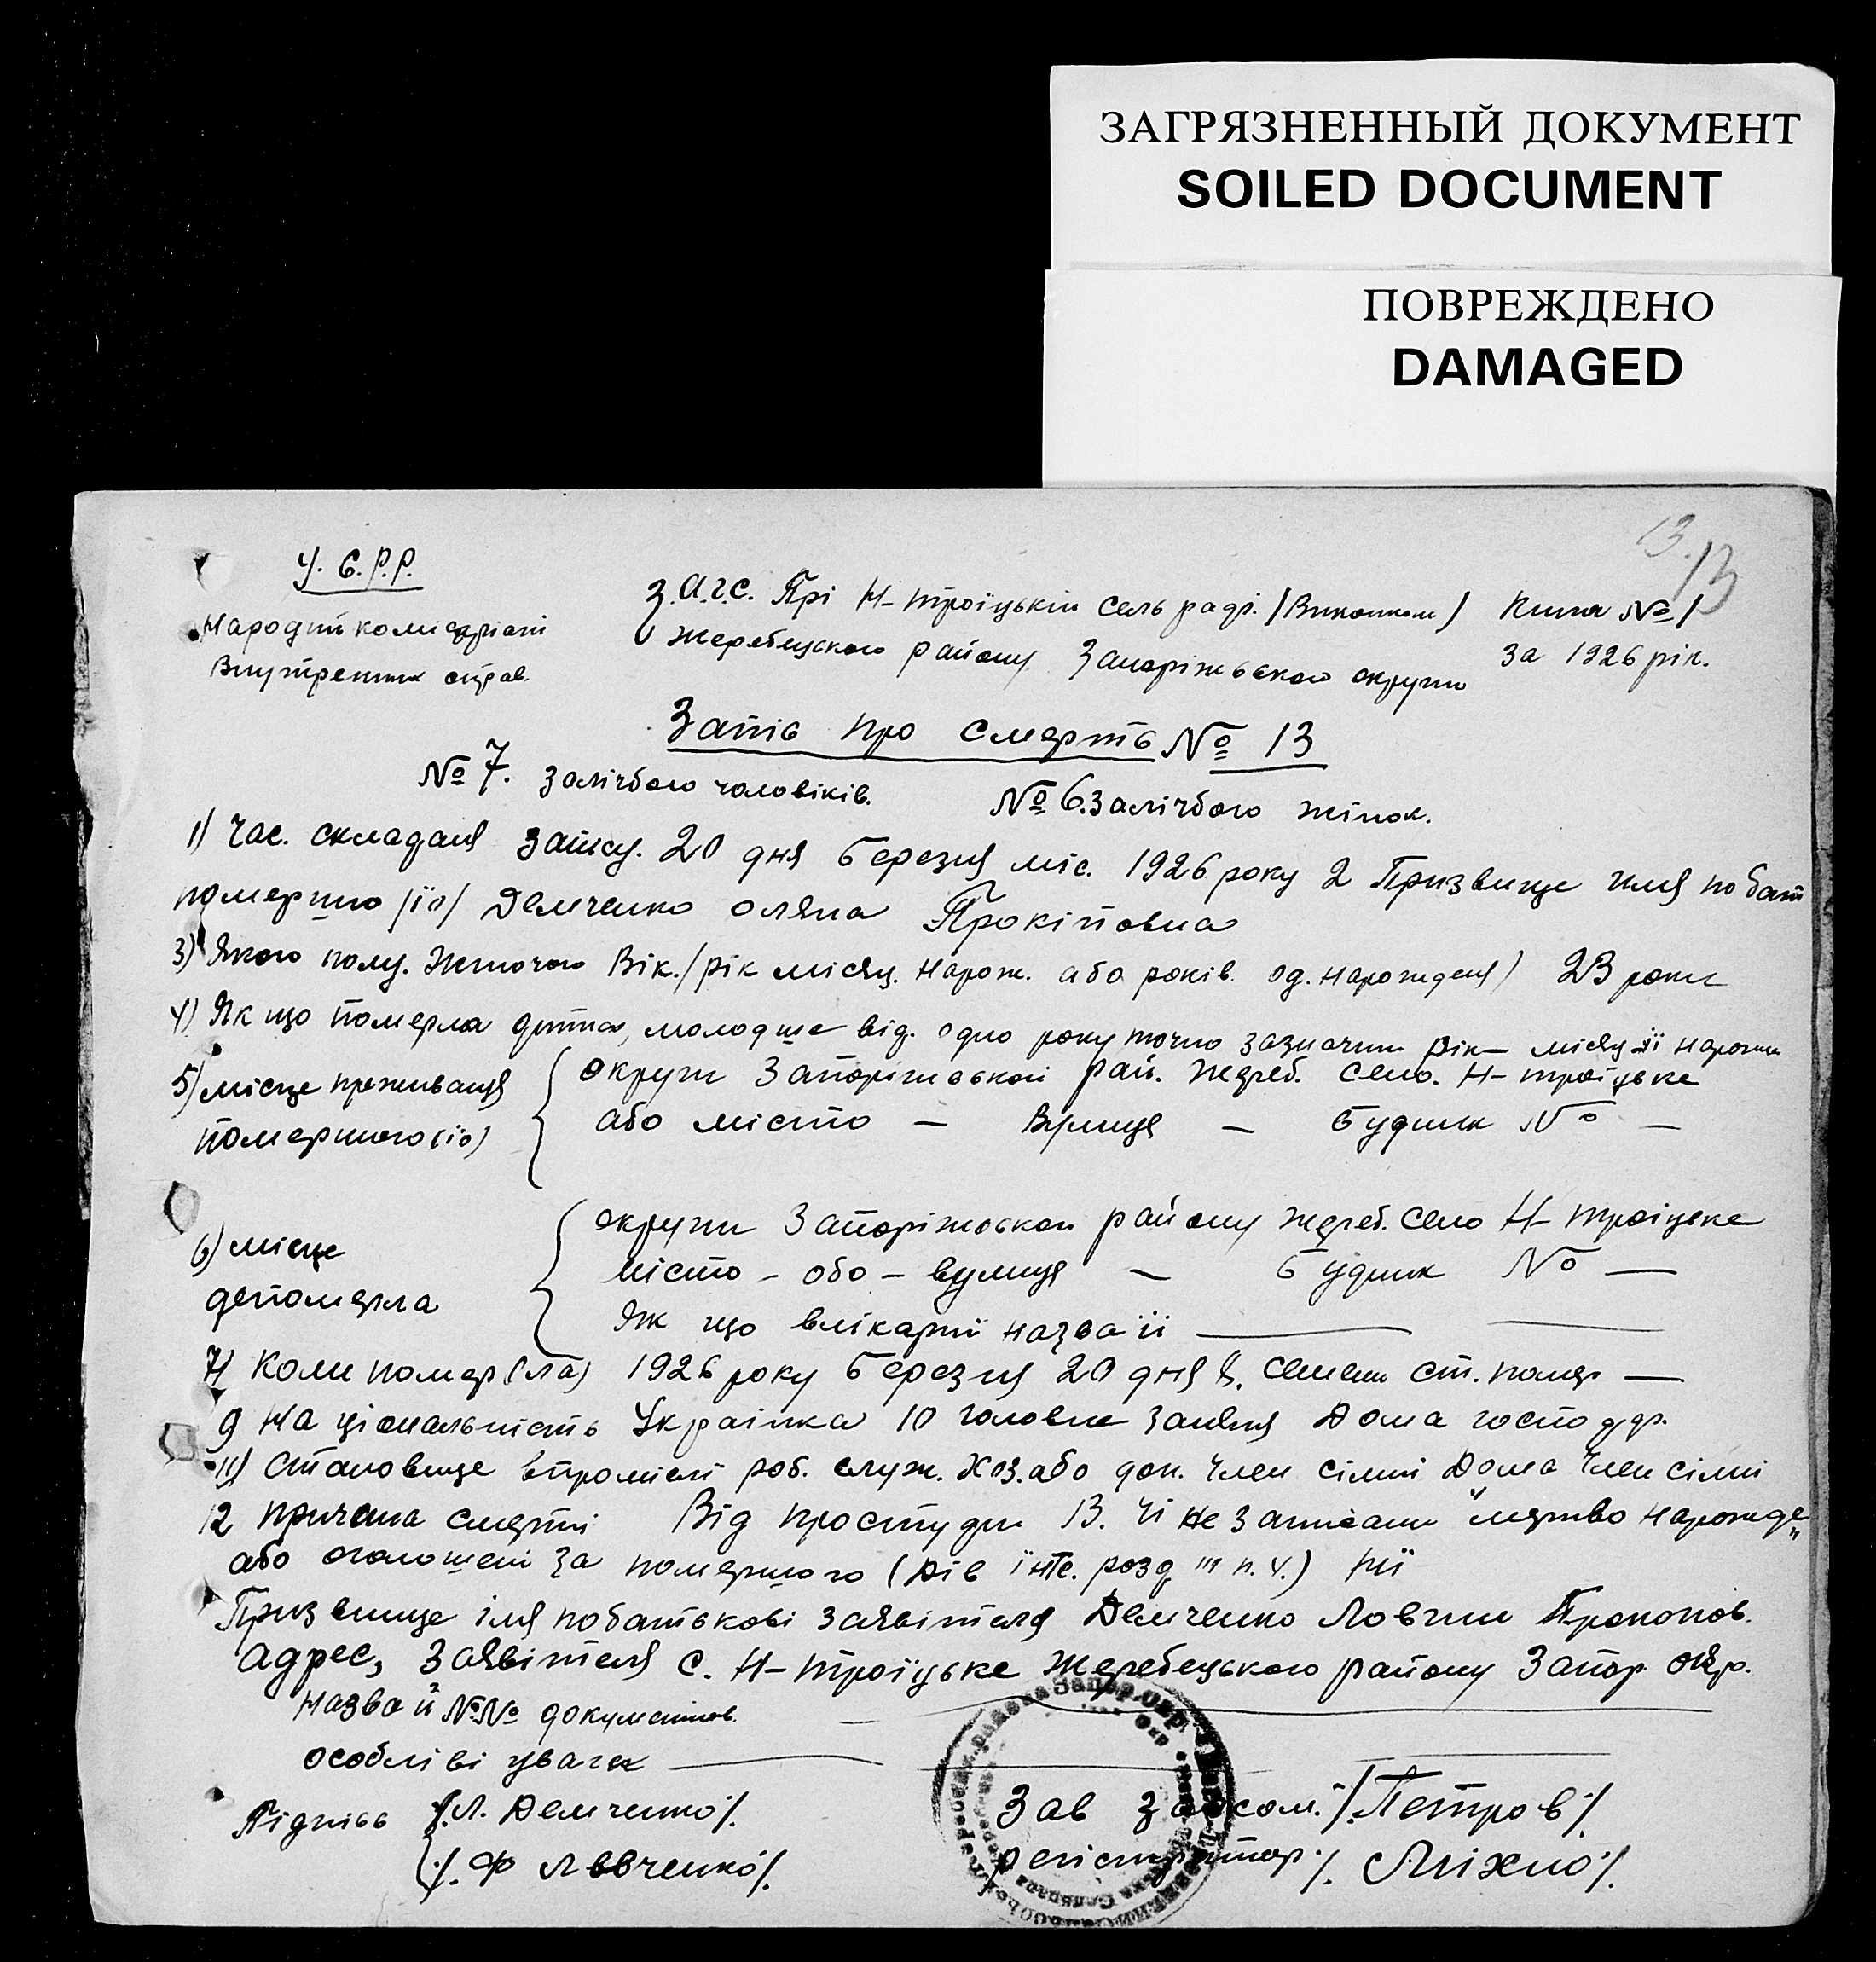 ЗАГРЯЗНЕННЫЙ ДОКУМЕНТ
SOILED DOCUMENT
ПОВРЕЖДЕНО
DAMAGED
13. 13
У. С. Р. Р.
Народний комісаріят
Внутренних справ.
З.А.Г.С. Прі Н-троіцькій сель раді. /Виконком/
Жеребецького району Запоріжського округи
Книга № 1
За 1926 рік.
Запіс про смерть № 13
№ 7. залічбою чоловіків. № 6. залічбою жінок.
1) Час. складаня запісу. 20 дня березня міс. 1926 року 2 Призвище имя по бат
помершо /їо/ Демченко Оляна Прокіповна
3) Якого полу. Жіночого Вік./рік місяц. нарож. або років. од. нарожденя) 23 роки
4) Як що померла дитина, молодше від. одно року точно зазначити рік — місяц її нарожн
5) місце проживаня
помершого (їо)
округи Запоріжськой рай. Жереб. Село. Н-троїцьке
або місто — Вулиця — будинк № —
6) місце
депомерла
округи Запоріжськой району Жереб. Село Н-троіцьке
місто - обо - вулиця — будинк № —
Як що влікарні назва її —
7) Коли помер(ла) 1926 року березня 20 дня 8. Семейн ст. помер —
9 Національність Українка 10 Головне заняття Дома господар.
11) Становище впромислі роб. служ. хоз. або доп. член сімії Дома член сімії
12 Причина смерті Від простуди 13. Чі не записани "мертво нарожде"
або оголошені за помершого (Див їнте. розд III п. 4.) Ні
Призвище імя побатькові заявітеля Демченко Ловгин Прокопов.
адрес, Заявітеля с. Н-троїцьке Жеребецького району Запор окр.
Назва й №№ документов. —
особліві уваги —
Підпісь /.Л. Демченко/.
/. Ф Левченко/.
Зав загсом. /.Петров/.
регістратор /. Міхно/.